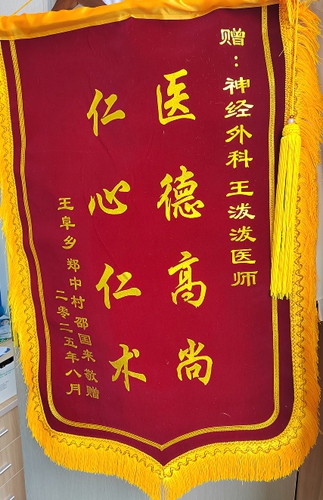 赠：神经外科王泼泼医师
医德高尚
仁心仁术
王阜乡 郑中村 邵国来 敬赠
二零二五年八月